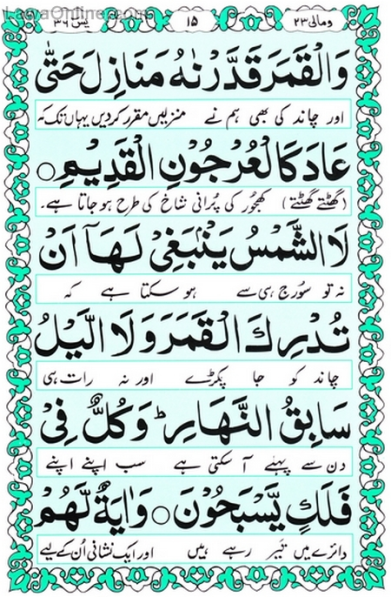 ومالی ۲۳ ۱۵ یٰسٓ ۳۶
وَالْقَمَرَ قَدَّرْنٰهُ مَنَازِلَ حَتّٰى
اور چاند کی بھی ہم نے منزلیں مقرر کردیں یہاں تک کہ
عَادَ كَالْعُرْجُوْنِ الْقَدِيْمِ ○
(گھٹتے گھٹتے) کھجور کی پرانی شاخ کی طرح ہو جاتا ہے۔
لَا الشَّمْسُ يَنْۢبَغِىْ لَهَاۤ اَنْ
نہ تو سورج ہی سے ہو سکتا ہے کہ
تُدْرِكَ الْقَمَرَ وَلَا الَّيْلُ
چاند کو جا پکڑے اور نہ رات ہی
سَابِقُ النَّهَارِ ؕ وَكُلٌّ فِىْ
دن سے پہلے آ سکتی ہے سب اپنے اپنے
فَلَكٍ يَّسْبَحُوْنَ ○ وَاٰيَةٌ لَّهُمْ
دائرے میں تیر رہے ہیں اور ایک نشانی اُن کے لیے